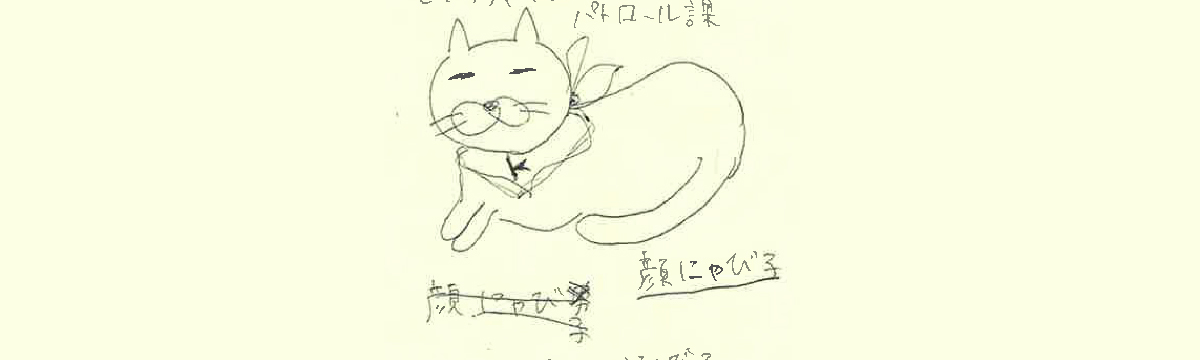 パトロール課
K
顔にゃび子
顔にゃび
子